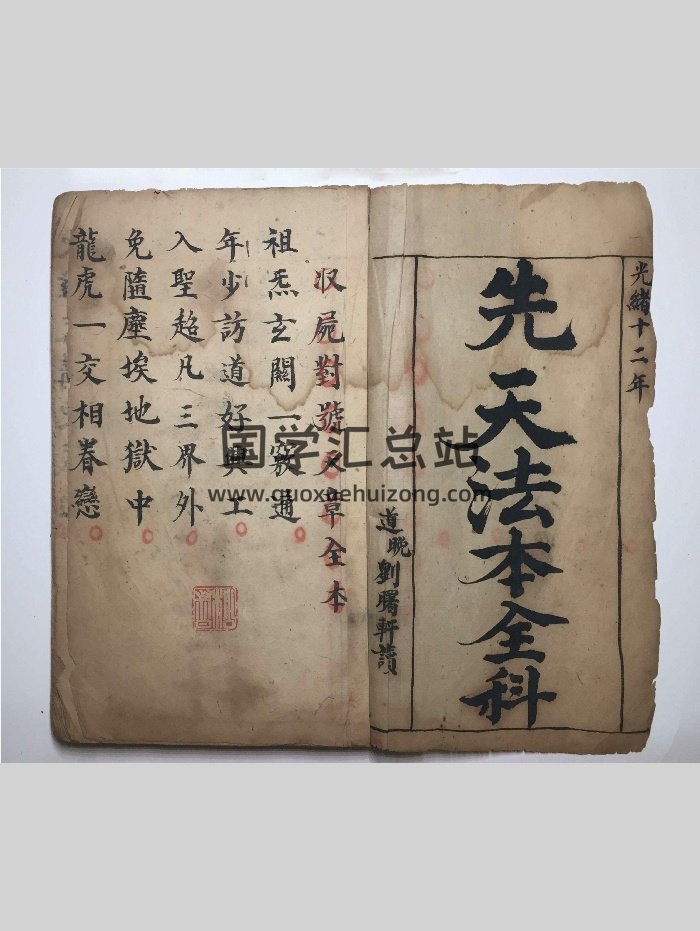 光緒十二年
先天法本全科
道晚劉曙軒讀
収屍對號章全本
祖炁玄關一竅通
年少訪道好興工
入聖超凡三界外
免隨塵埃地獄中
龍虎一交相眷戀
国学汇总站
www.guoxuehuizong.com